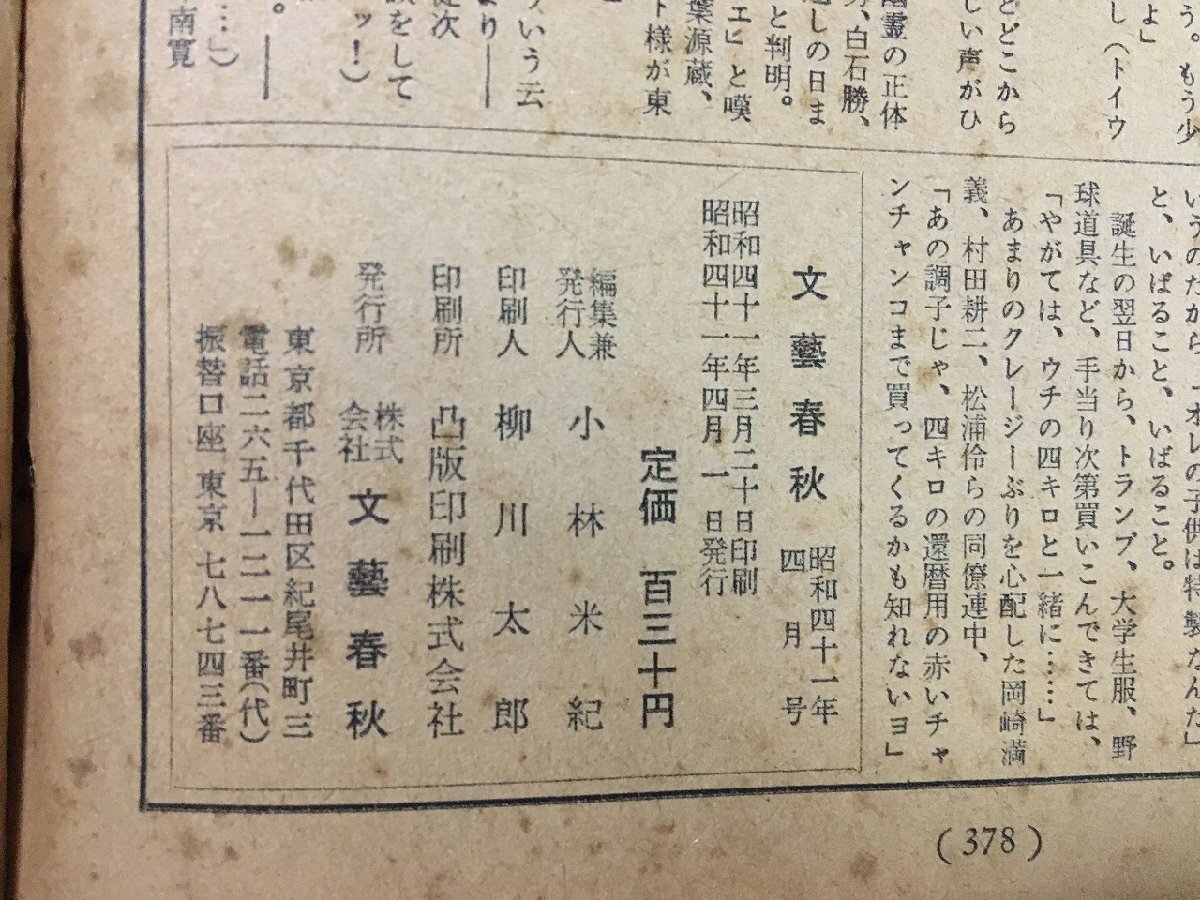 う。もう少
よ」
し（トイウ
どどこから
しい声がひ
幽霊の正体
、白石勝、
しの日ま
と判明。
エ」と嘆
葉源蔵、
ト様が東
いう云
より――
従次
をして
ッ！）
。――
…」）
南寛
いうのだから、オレの子供は特製なんだ」
と、いばること、いばること。
誕生の翌日から、トランプ、大学生服、野
球道具など、手当り次第買いこんできては、
「やがては、ウチの四キロと一緒に……」
あまりのクレージーぶりを心配した岡崎満
義、村田耕二、松浦伶らの同僚連中、
「あの調子じゃ、四キロの還暦用の赤いチャ
ンチャンコまで買ってくるかも知れないヨ」
文藝春秋 昭和四十一年四月号
昭和四十一年三月二十日印刷
昭和四十一年四月一日発行
定価 百三十円
編集兼発行人 小林米紀
印刷人 柳川太郎
印刷所 凸版印刷株式会社
発行所 株式会社 文藝春秋
東京都千代田区紀尾井町三
電話二六五―一二一一番（代）
振替口座 東京 七八七四三番
(378)